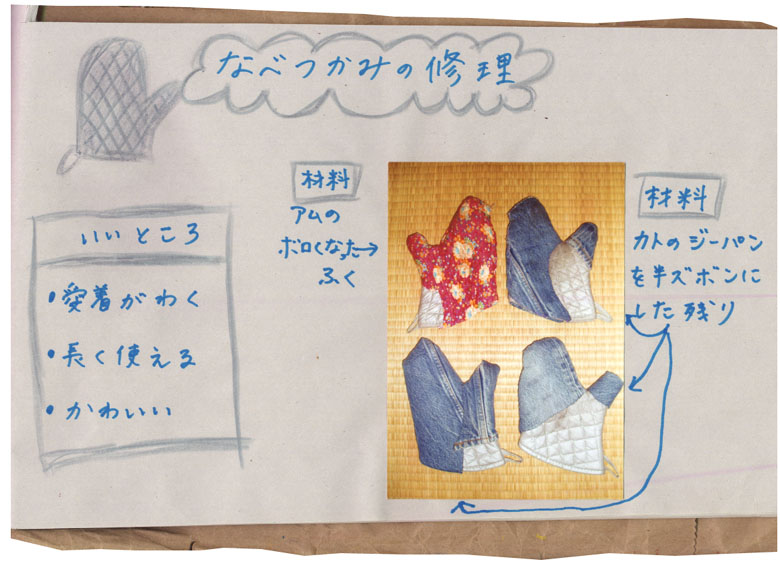 なべつかみの修理
材料
アムの
ボロくなった
ふく
材料
カトのジーパン
を半ズボンに
した残り
いいところ
・愛着がわく
・長く使える
・かわいい